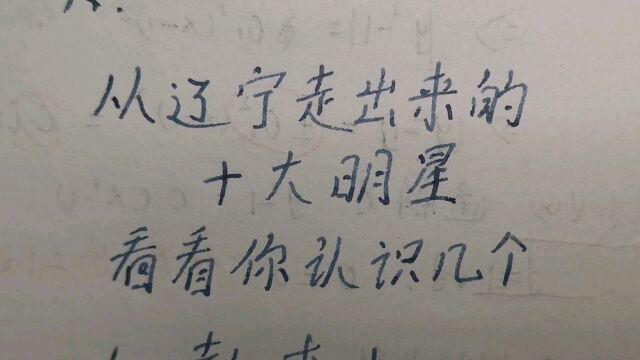 从辽宁走出来的
十大明星
看看你认识几个